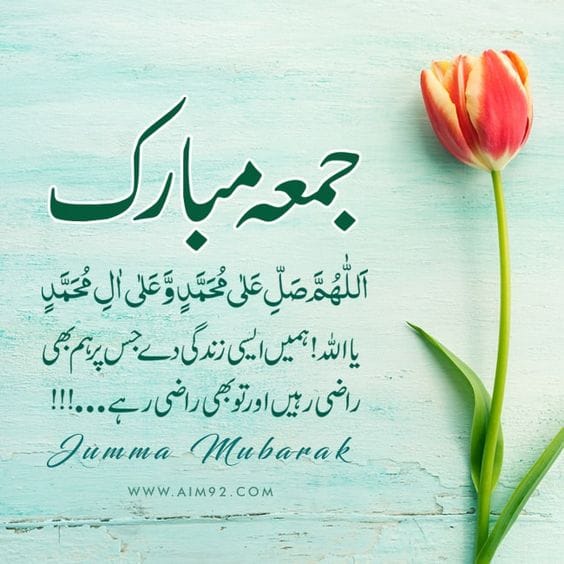 جمعہ مبارک
اَللّٰهُمَّ صَلِّ عَلٰى مُحَمَّدٍ وَّعَلٰى اٰلِ مُحَمَّدٍ
یا اللہ! ہمیں ایسی زندگی دے جس پر ہم بھی
راضی رہیں اور تو بھی راضی رہے...!!!
Jumma Mubarak
WWW.AIM92.COM